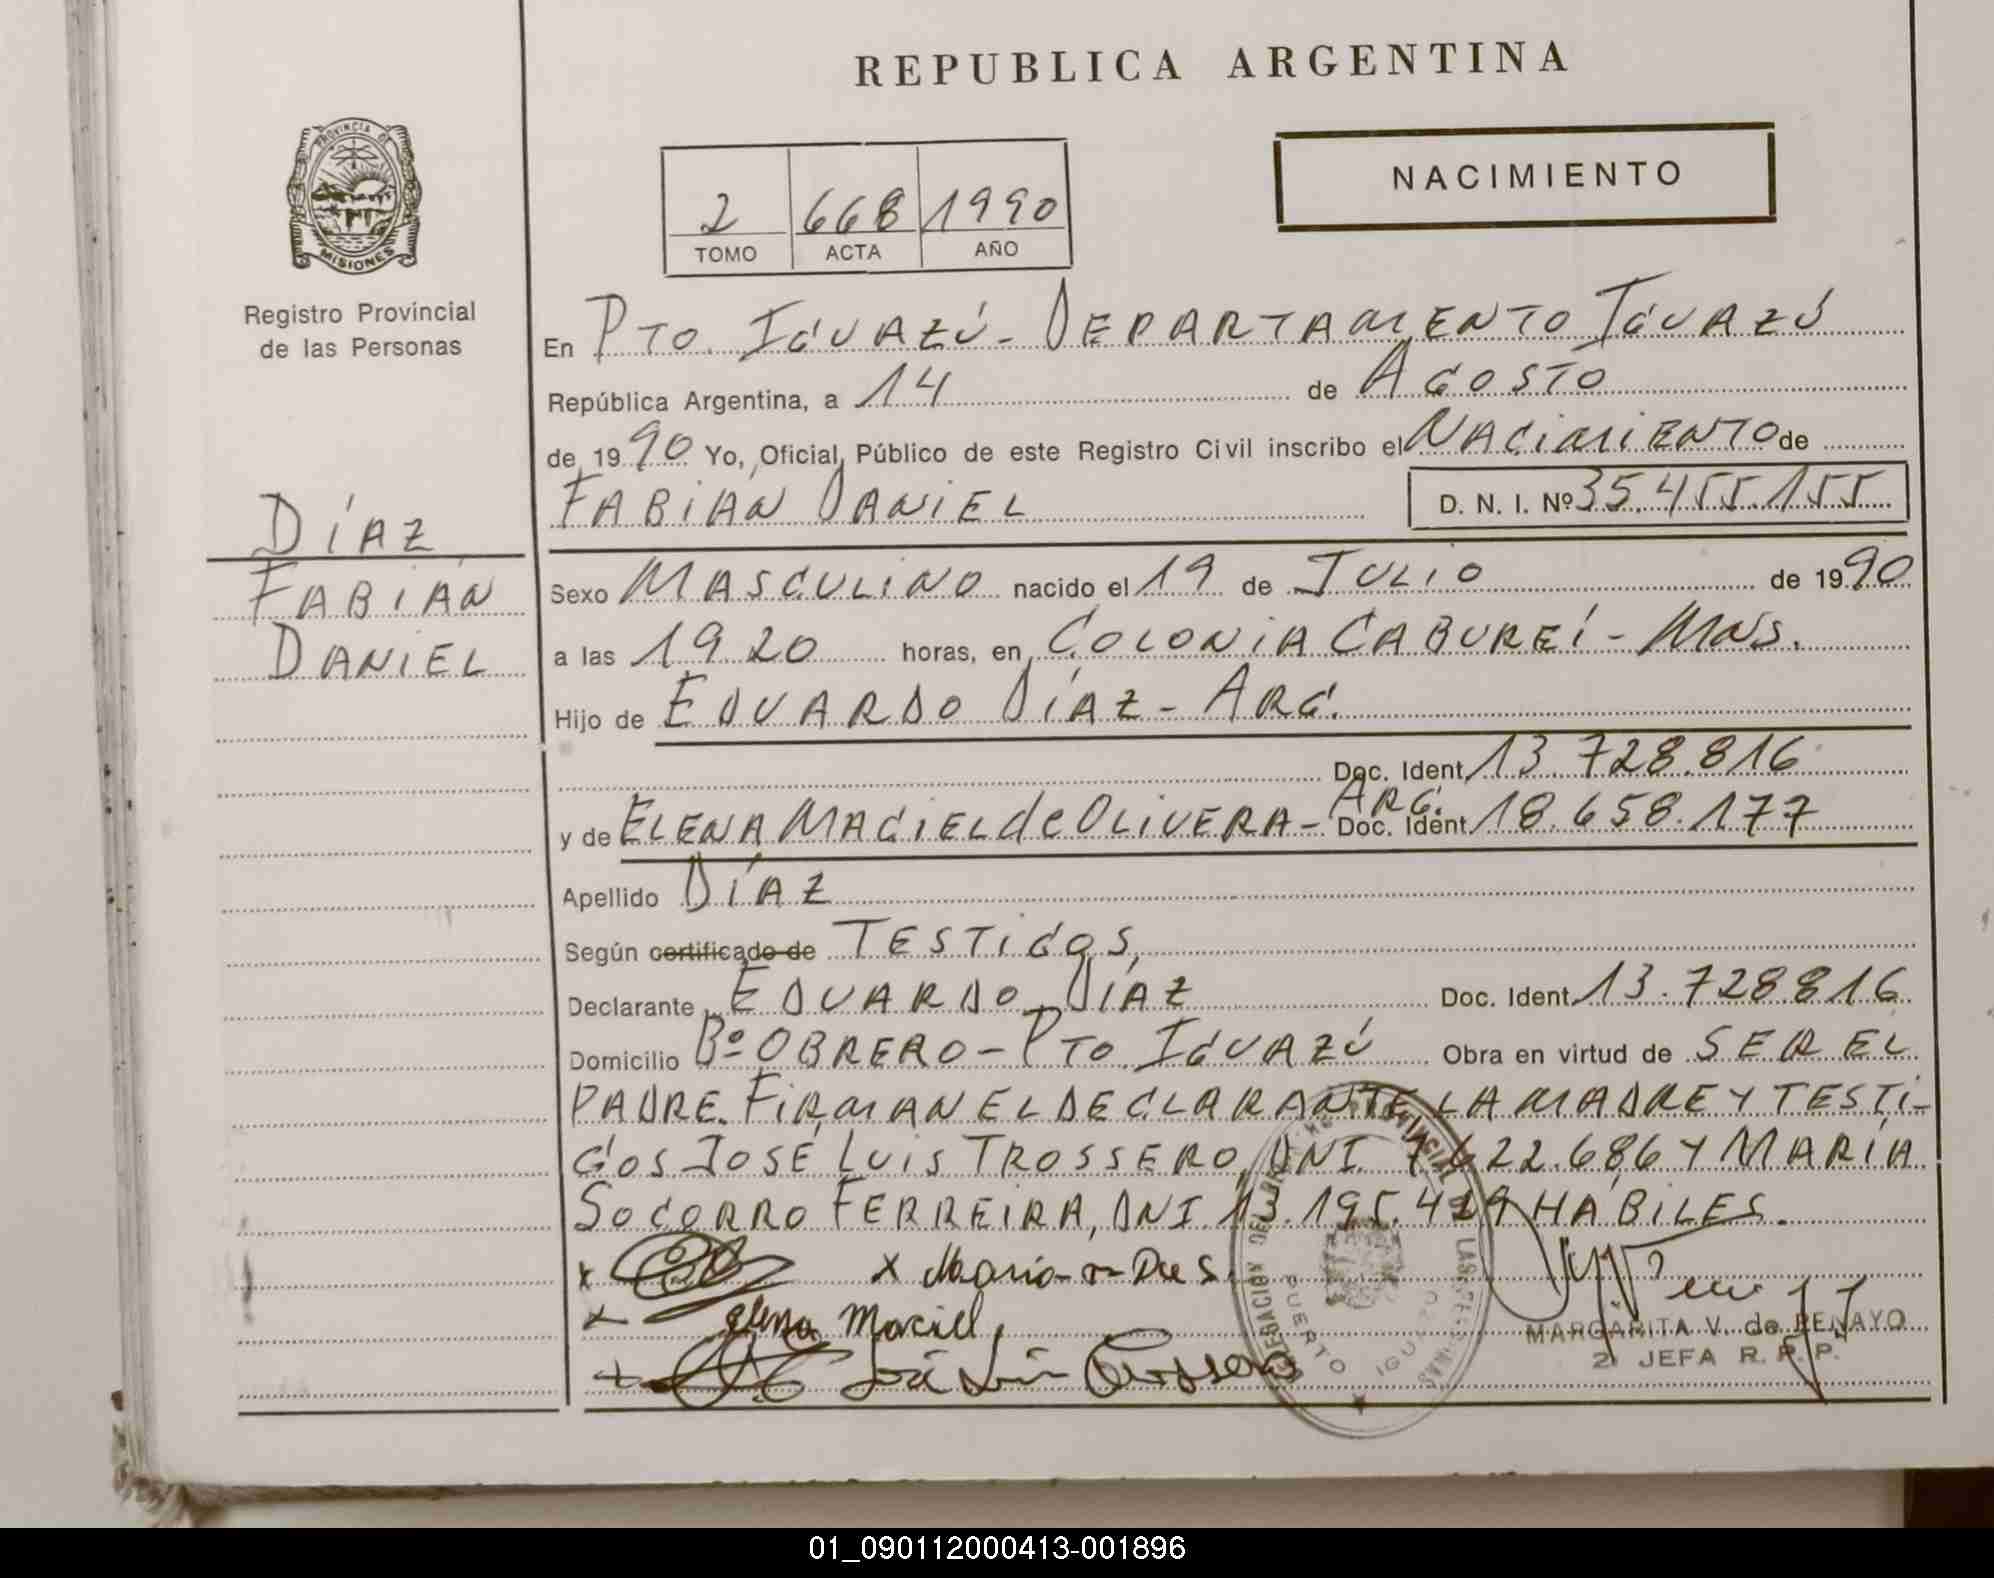 REPUBLICA ARGENTINA
PROVINCIA DE
MISIONES
Registro Provincial
de las Personas
2 668 1990
TOMO ACTA AÑO
NACIMIENTO
En PTO. IGUAZÚ - DEPARTAMENTO IGUAZÚ
República Argentina, a 14 de AGOSTO
de 1990 Yo, Oficial Público de este Registro Civil inscribo el NACIMIENTO de
FABIÁN DANIEL D. N. I. Nº 35.455.155
DÍAZ
FABIÁN
DANIEL
Sexo MASCULINO nacido el 19 de JULIO de 1990
a las 19 20 horas, en COLONIA CABUREÍ - MNS.
Hijo de EDUARDO DÍAZ - ARG.
Doc. Ident. 13.728.816
y de ELENA MACIEL de OLIVERA - ARG. Doc. Ident. 18.658.177
Apellido DÍAZ
Según certificado de TESTIGOS,
Declarante EDUARDO DÍAZ Doc. Ident. 13.728.816
Domicilio Bº OBRERO - PTO. IGUAZÚ Obra en virtud de SER EL
PADRE. FIRMAN EL DECLARANTE, LA MADRE Y TESTI-
GOS JOSÉ LUIS TROSSERO, DNI. 7.622.686 Y MARÍA
SOCORRO FERREIRA, DNI. 13.195.429 HÁBILES.
x x
x Elena Maciel
x José Luis Trossero
PUERTO IGUAZU
MARGARITA V. de PENAYO
2ª JEFA R. P. P.
01_090112000413-001896